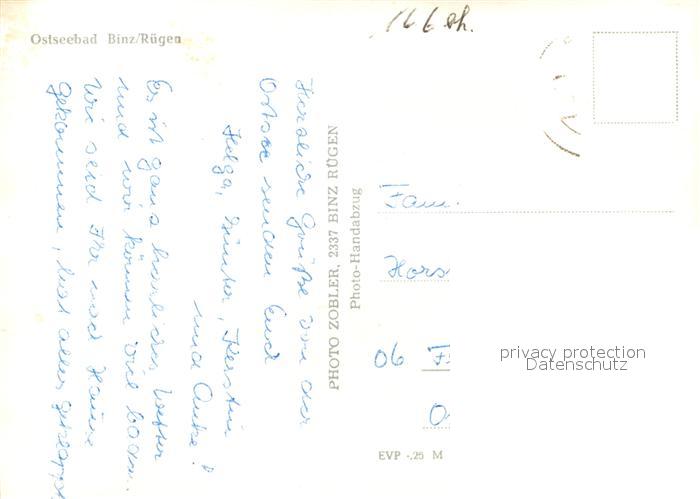 Ostseebad Binz/Rügen
166 sh.
Herzliche Grüße von der
Ostsee senden Euch
Helga, Günter, Kerstin
und Anke!
Es ist ganz herrliches Wetter
und wir können viel baden.
Wie seid Ihr nach Hause
gekommen, hat alles geklappt
PHOTO ZOBLER, 2337 BINZ RÜGEN
Photo-Handabzug
Fam.
Hors
06
O
privacy protection
Datenschutz
EVP -,25 M